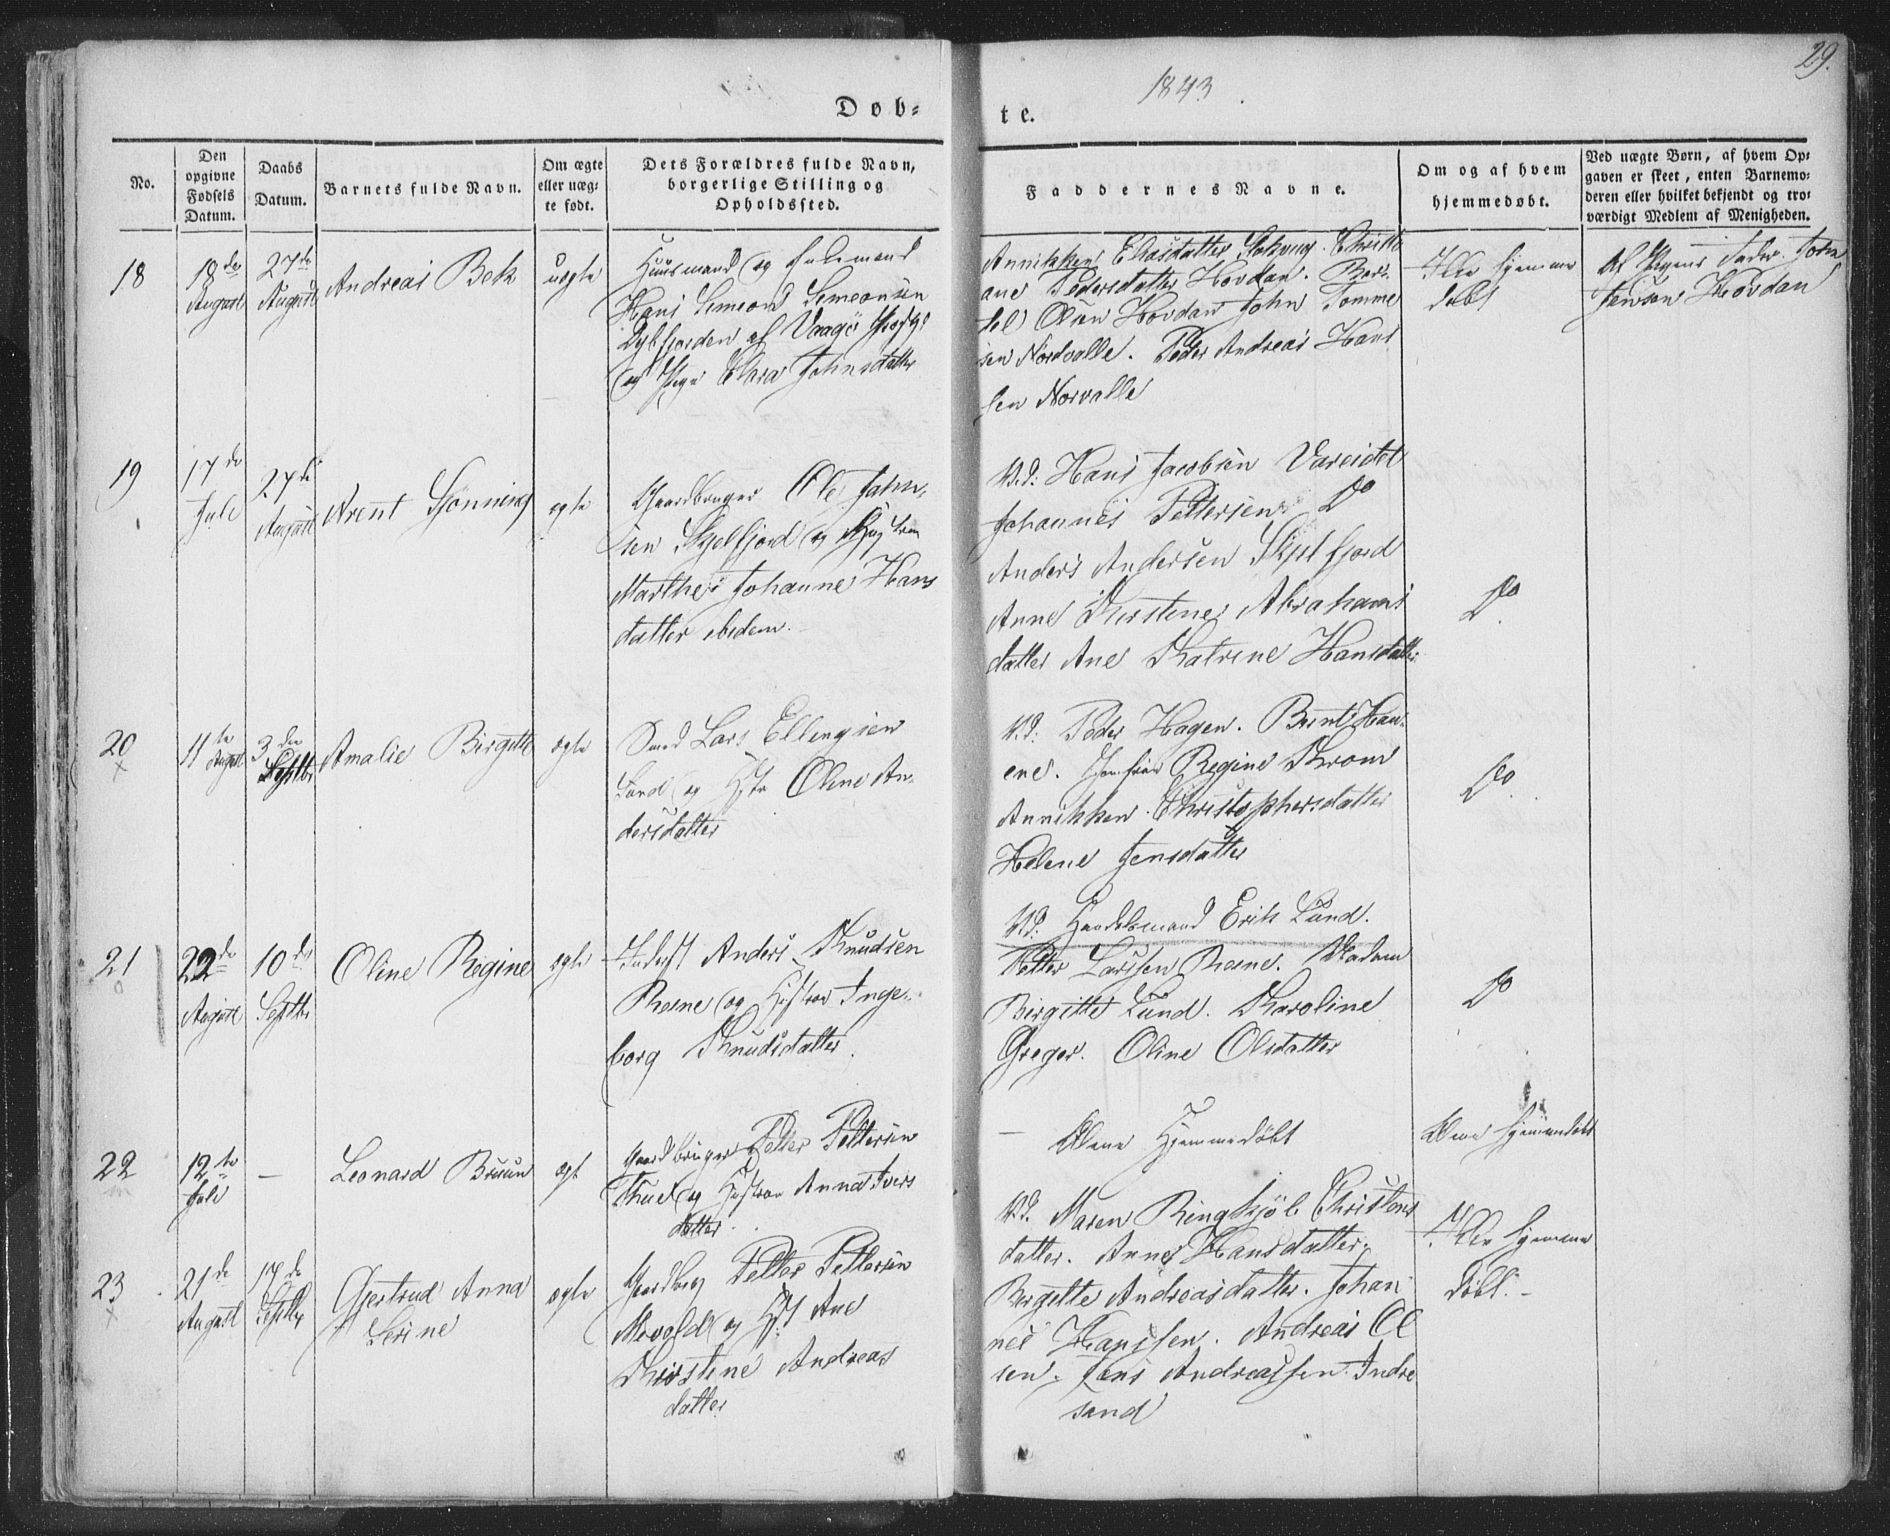 29.
1843
Døb-
te.
No.
Den
opgivne
Fødsels
Datum.
Daabs
Datum.
Barnets fulde Navn.
Om ægte
eller uæg-
te født.
Dets Forældres fulde Navn,
borgerlige Stilling og
Opholdssted.
Faddernes Navne.
Om og af hvem
hjemmedøbt.
Ved uægte Børn, af hvem Op-
gaven er skeet, enten Barnemo-
deren eller hvilket bekjendt og tro-
værdigt Medlem af Menigheden.
18
18de
August
27de
August
Andreas Bek
uægte
Huusmand og
Hans Simeon Simeonsen
af Vaagø
og Pige Clara Johnsdatter
Annikken Eliasdatter Christi
ane Pedersdatter Hovdan.
Olsen Hovdan John Tomme
sen Nordvalle. Peder Andreas Hans
sen Norvalle
Ikke hjemme
døbt
Af Pigens Fader John
Jensen Hovdan
19
17de
Juli
27de
August
Arent Sjønning
ægte
Gaardbruger Ole John-
sen Skjelfjord og
Marthe Johanne Hans
datter ibidem.
Vd: Hans Jacobsen Vareidet
Johannes Pettersen Do
Anders Andersen Skjelfjord
Anne Kirstine Abrahams
datter Ane Katrine Hansdatter
Do
20
11te
August
3die
Septbr
Amalie Birgitte
ægte
Lars Ellingsen
Sund og Hstr Oline An-
dersdatter
Vd: Peder Hagen. Bernt Han-
Jomfrue Regine Krom
Annikken Christophersdatter
Helene Jensdatter
Do
21
22de
August
10de
Septbr
Oline Regine
ægte
Inderst Anders Knudsen
Ræne og Hustroe Inge-
borg Knudsdatter.
Vd: Handelsmand Erik Lund.
Petter Larssen Ræne. Madam
Birgitte Lund. Karoline
Greger. Oline Olsdatter
Do
22
12te
Juli
—
Leonard Bruun
ægt
Gaardbruger Peder Pettersen
og Hustroe Anna Ivers
datter.
— Hjemmedøbt
hjemmedøbt
23
21de
August
17de
Septbr
Gjertrud Anna
Serine
ægte
Gaardbrg Petter Pettersen
og Hst Ane
Kirstine Andreas
datter
Vd. Maren Ringkjøb Christens
datter. Anne Hansdatter.
Bergitte Andreasdatter. Johan
nes Hanssen. Andreas Ol
sen. Jens Andreassen Indre
sand
Ikke hjemme
døbt. -